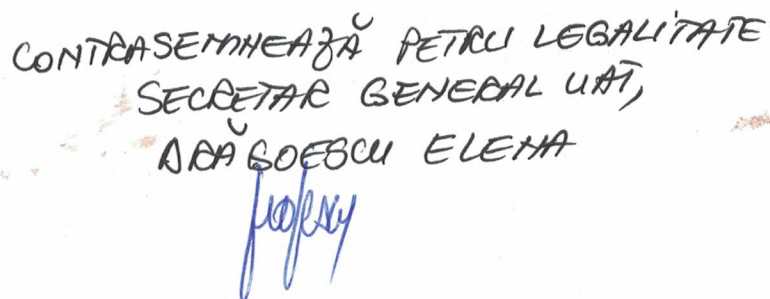 CONTRASEMNEAZĂ PETRU LEGALITATE
SECRETAR GENERAL UAT,
DRĂGOESCU ELENA